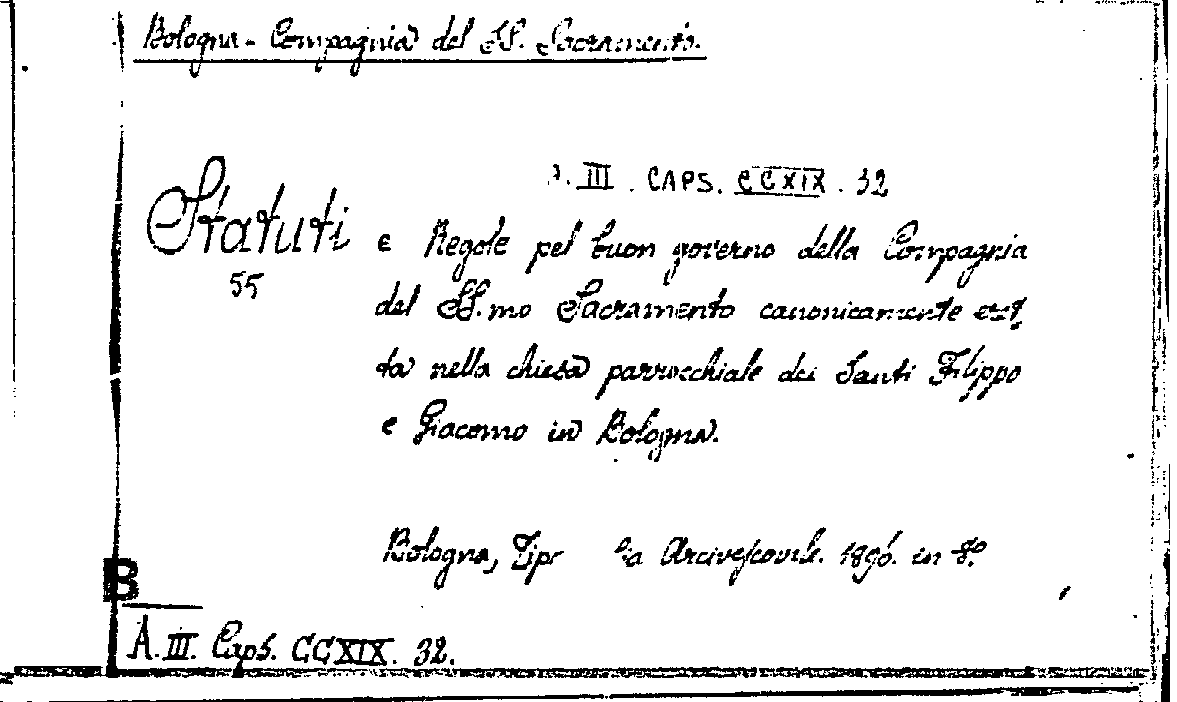 Bologna - Compagnia del SS. Sacramento.
A. III. CAPS. CCXIX. 32
Statuti e Regole pel buon governo della Compagnia
55
del SS.mo Sacramento canonicamente eret
ta nella chiesa parrocchiale dei Santi Filippo
e Giacomo in Bologna.
Bologna, Tip Arcivescovile. 1896. in 8º
B
A. III. Caps. CCXIX. 32.